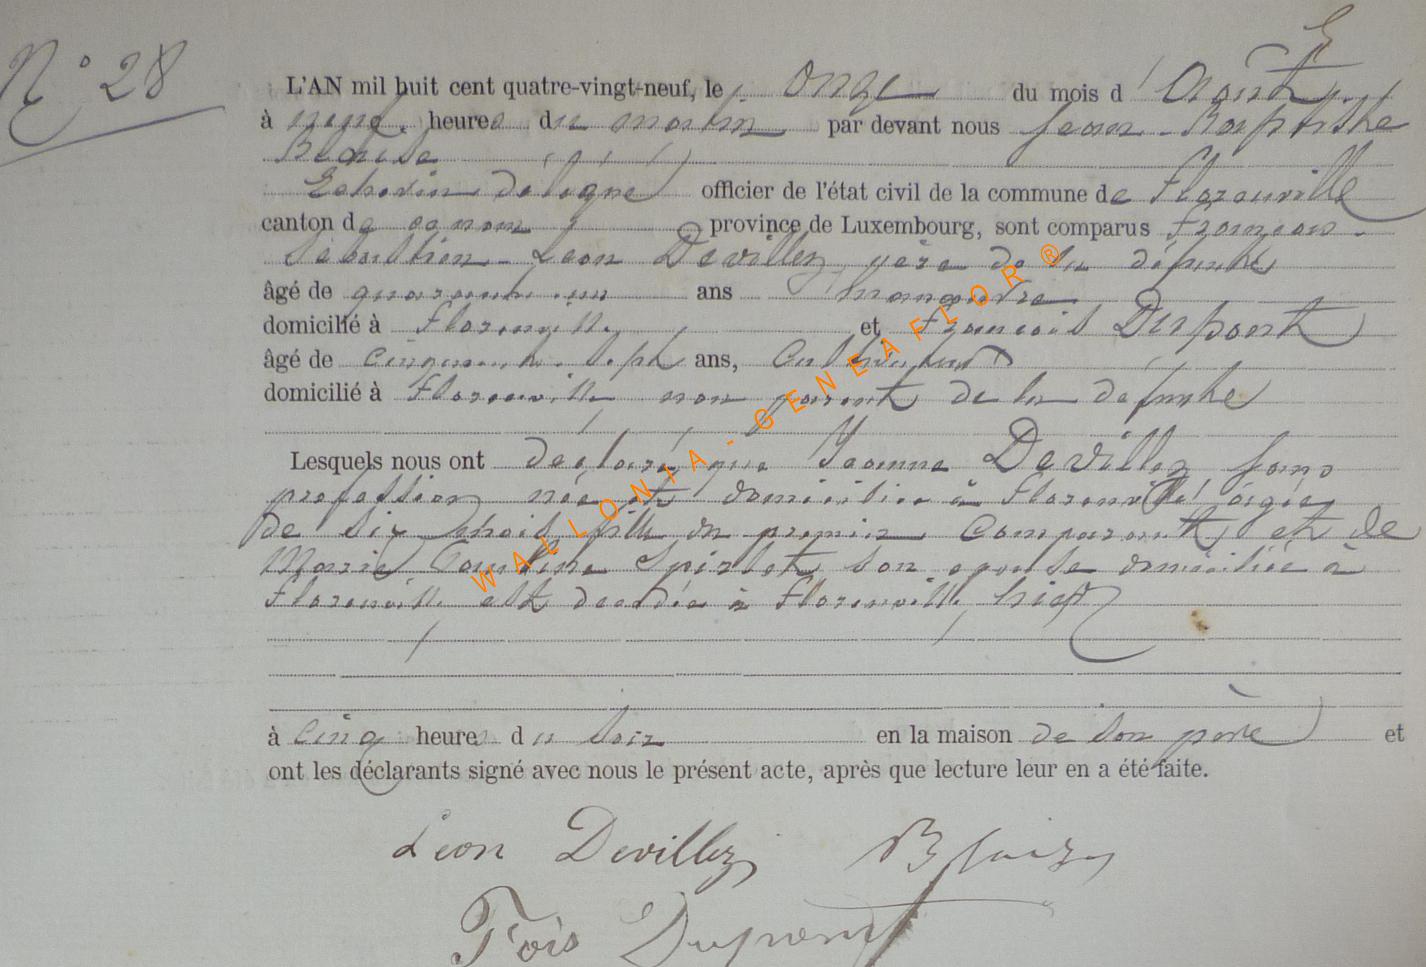 N° 28
L'AN mil huit cent quatre-vingt-neuf, le onze du mois d'Août
à neuf heures du matin par devant nous Jean-Baptiste
Blaise
Echevin délégué officier de l'état civil de la commune de Florenville
canton de ce nom province de Luxembourg, sont comparus François-
Sébastien-Léon Devillez, père de la défunte
âgé de quarante-un ans manœuvre
domicilié à Florenville et François Dupont
âgé de cinquante-sept ans, Cultivateur
domicilié à Florenville non parent de la défunte
Lesquels nous ont déclaré que Jeanne Devillez sans
profession née et domiciliée à Florenville âgée
de six mois fille du premier Comparant et de
Marie Pauline Spirlet son épouse domiciliée à
Florenville est décédée à Florenville, hier
à cinq heures du soir en la maison de son père et
ont les déclarants signé avec nous le présent acte, après que lecture leur en a été faite.
Léon Devillez
Fois Dupont
WALLONIA-GENEAFLOR®